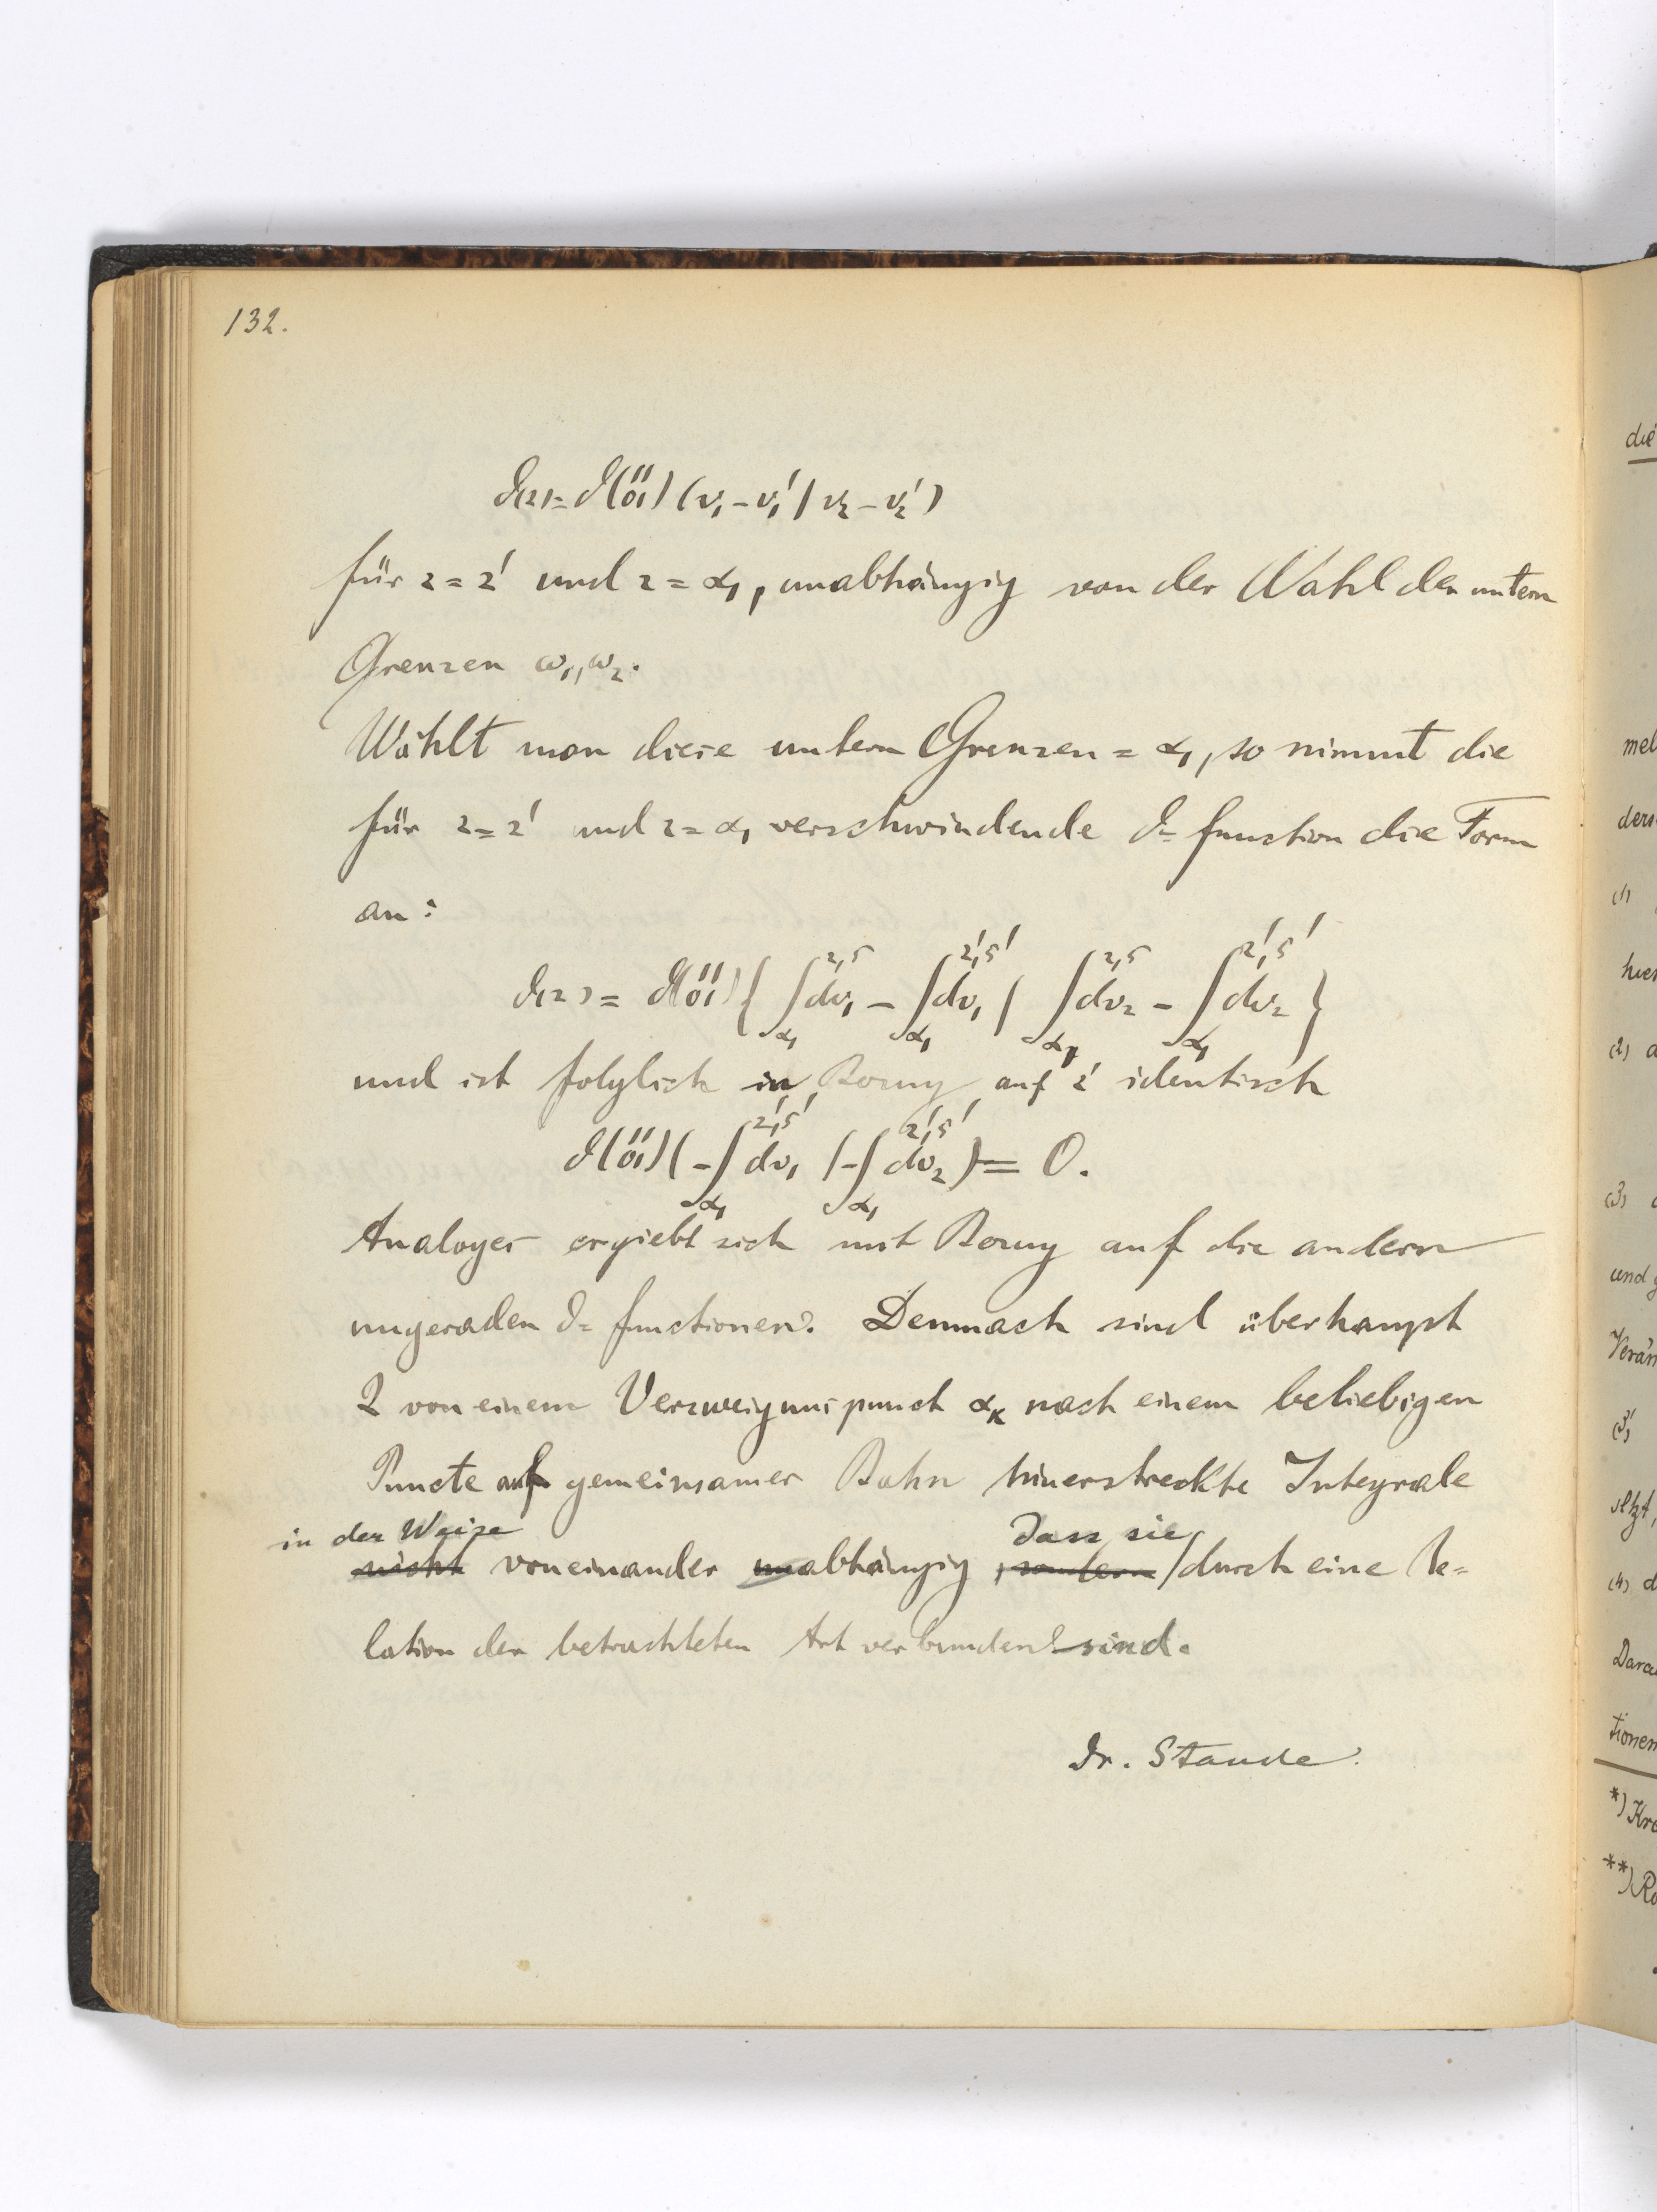 132.
ϑ(z) = ϑ(¹¹₀₁) (v₁ – v₁' | v₂ – v₂')
für z = z' und z = α₁, unabhängig von der Wahl der untern
Grenzen ω₁, ω₂.
Wählt man diese untern Grenzen = α₁, so nimmt die
für z = z' und z = α₁ verschwindende ϑ= function die Form
an:
ϑ(z) = ϑ(¹¹₀₁) { ∫_{α₁}^{z,s} dv₁ – ∫_{α₁}^{z',s'} dv₁ | ∫_{α₁}^{z,s} dv₂ – ∫_{α₁}^{z',s'} dv₂ }
und ist folglich in Bezug auf z' identisch
ϑ(¹¹₀₁) ( – ∫_{α₁}^{z',s'} dv₁ | – ∫_{α₁}^{z',s'} dv₂ ) = 0.
Analoges ergiebt sich mit Bezug auf die andern
ungeraden ϑ= functionen. Demnach sind überhaupt
2 von einem Verzweigungspunct α_κ nach einem beliebigen
Puncte auf gemeinsamer Bahn hinerstreckte Integrale
in der Weise dass sie
nicht voneinander unabhängig , sondern / durch eine Re=
lation der betrachteten Art verbunden sind.
Dr. Staude.
die
mel
ders
(1)
hier
(2) d
(3)
und g
Verän
(3')
setzt,
(4) d
Dara
tionen
*) Kro
**) Ro